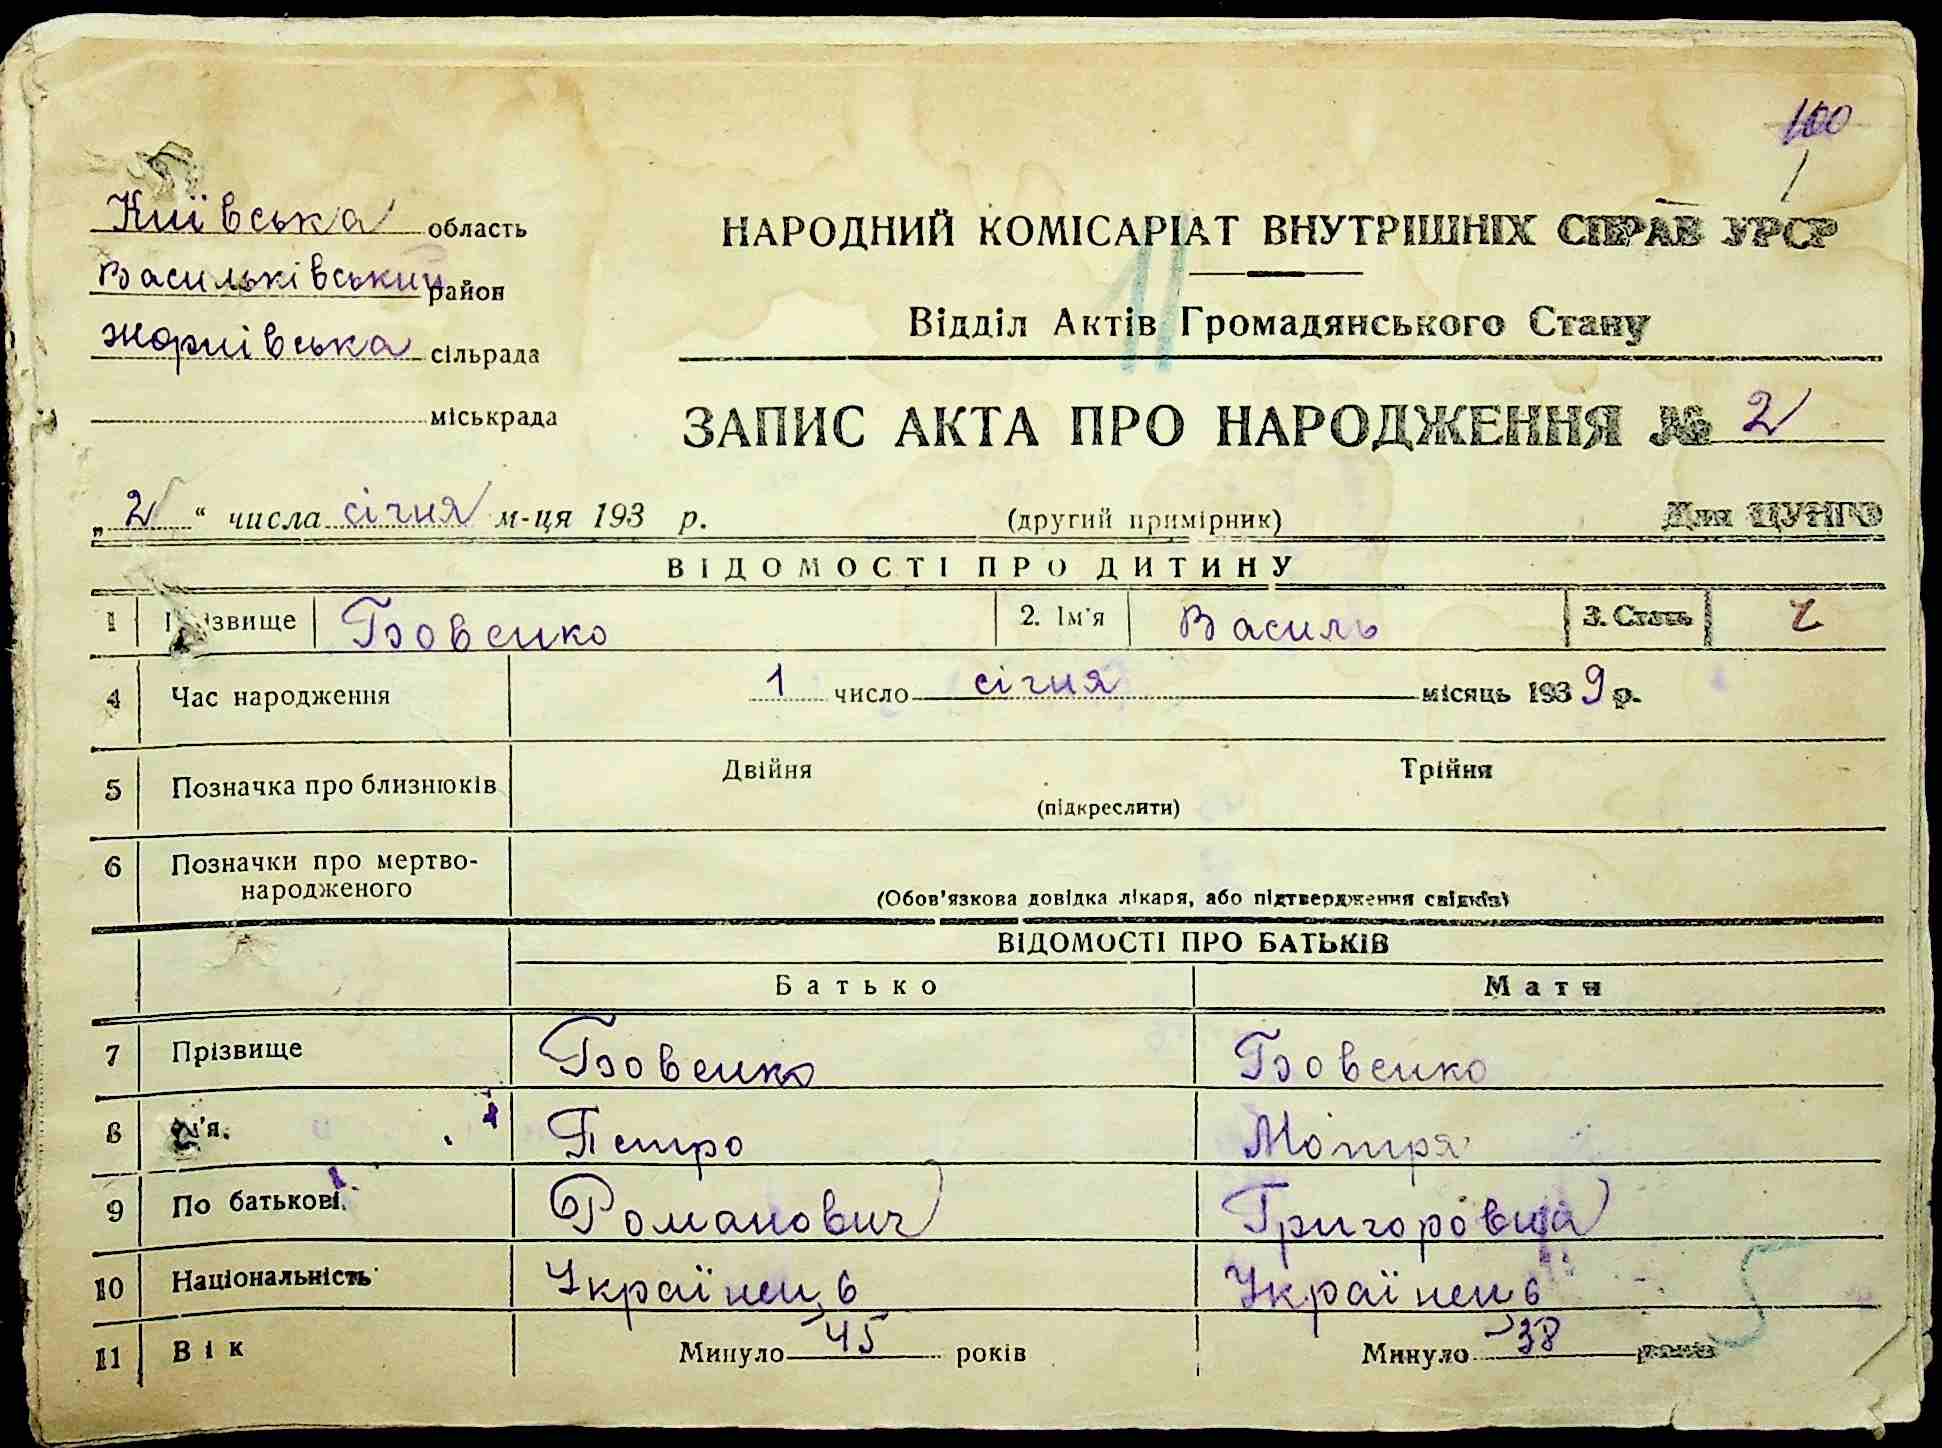 100
Київська область
Васильківський район
Жорнівська сільрада
міськрада
НАРОДНИЙ КОМІСАРІАТ ВНУТРІШНІХ СПРАВ УРСР
Відділ Актів Громадянського Стану
ЗАПИС АКТА ПРО НАРОДЖЕННЯ № 2
„2“ числа січня м-ця 193 р. (другий примірник) Для ЦУНГО
ВІДОМОСТІ ПРО ДИТИНУ
1 Прізвище Бовенко 2. Ім'я Василь 3. Стать ч
4 Час народження 1 число січня місяць 1939 р.
5 Позначка про близнюків Двійня Трійня
(підкреслити)
6 Позначки про мертво-
народженого
(Обов'язкова довідка лікаря, або підтвердження свідків)
ВІДОМОСТІ ПРО БАТЬКІВ
Батько Мати
7 Прізвище Бовенко Бовенко
8 Ім'я Петро Мотря
9 По батькові Романович Григоровна
10 Національність Українець Українець
11 Вік Минуло 45 років Минуло 38 років